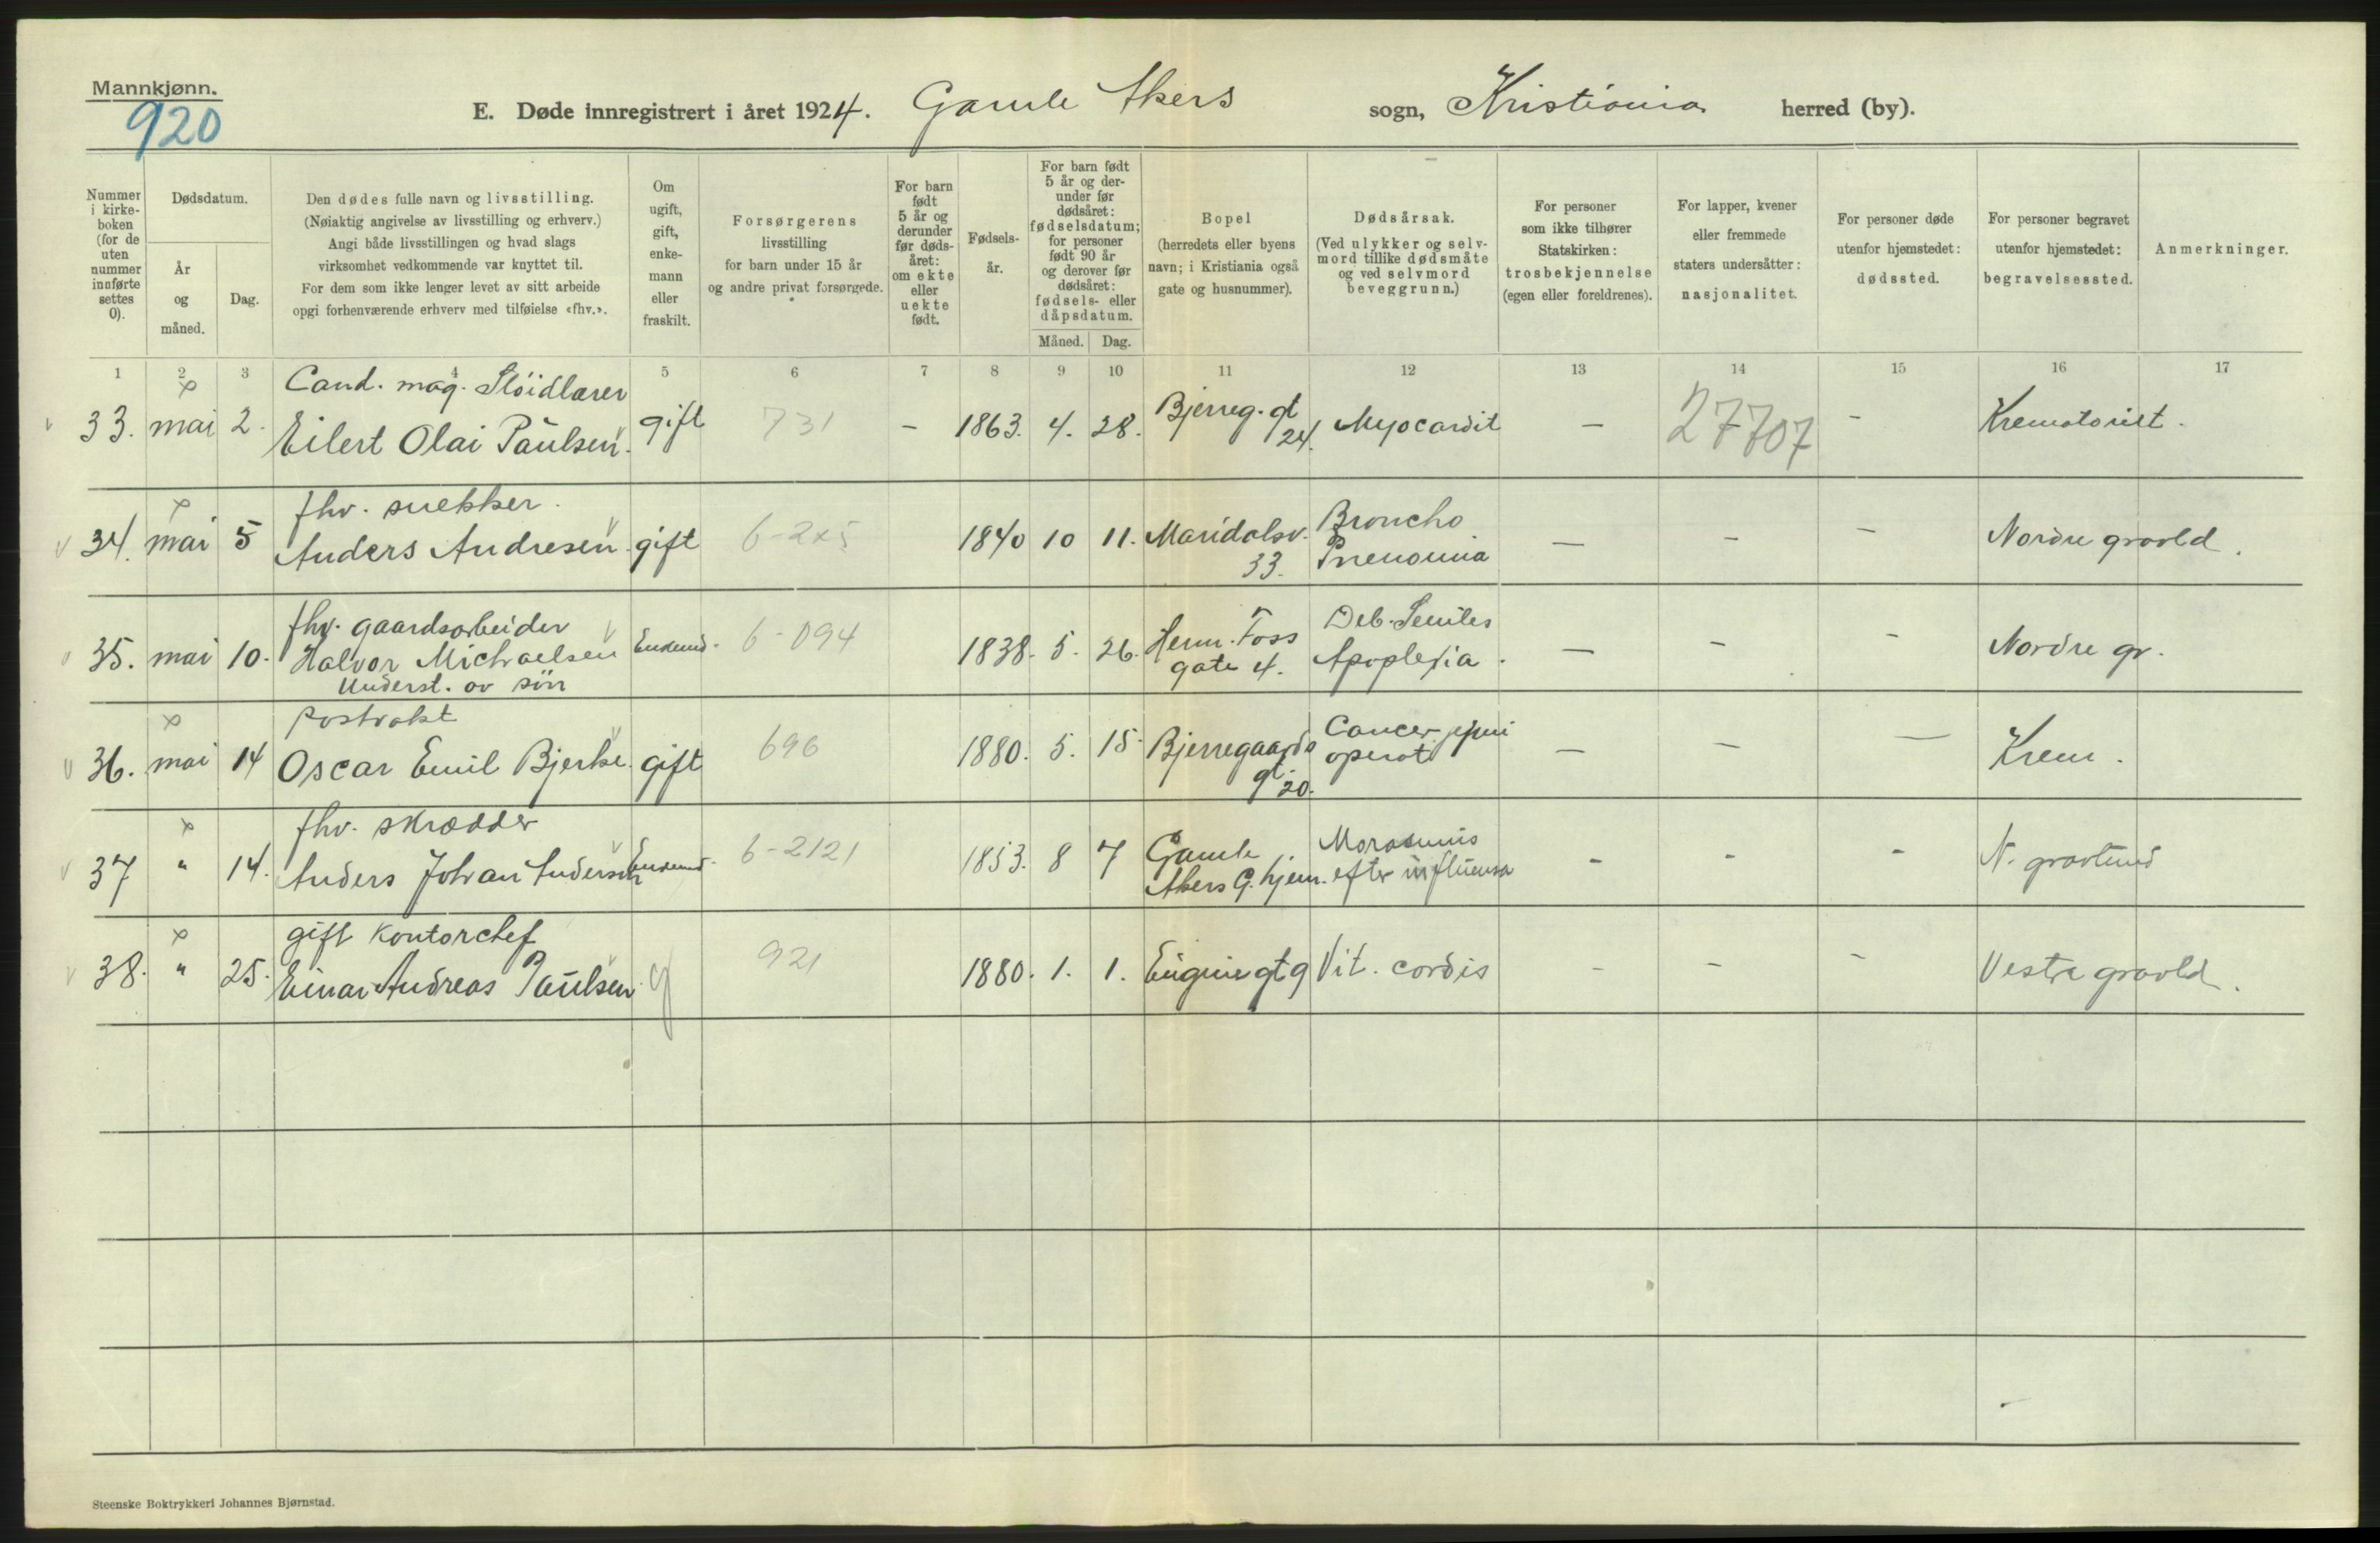 Mannkjønn.
920
E. Døde innregistrert i året 1924. Gamle Akers sogn, Kristiania herred (by).
Nummer i kirke-boken (for de uten nummer innførte settes 0).
Dødsdatum.
År og måned.
Dag.
Den dødes fulle navn og livsstilling.
(Nøiaktig angivelse av livsstilling og erhverv.)
Angi både livsstillingen og hvad slags
virksomhet vedkommende var knyttet til.
For dem som ikke lenger levet av sitt arbeide
opgi forhenværende erhverv med tilføielse «fhv.».
Om ugift, gift, enke-mann eller fraskilt.
Forsørgerens
livsstilling
for barn under 15 år
og andre privat forsørgede.
For barn født 5 år og derunder før døds-året: om ekte eller uekte født.
Fødsels-år.
For barn født 5 år og der-under før dødsåret: fødselsdatum; for personer født 90 år og derover før dødsåret: fødsels- eller dåpsdatum.
Måned.
Dag.
Bopel
(herredets eller byens
navn; i Kristiania også
gate og husnummer).
Dødsårsak.
(Ved ulykker og selv-
mord tillike dødsmåte
og ved selvmord
beveggrunn.)
For personer
som ikke tilhører
Statskirken:
trosbekjennelse
(egen eller foreldrenes).
For lapper, kvener
eller fremmede
staters undersåtter:
nasjonalitet.
For personer døde
utenfor hjemstedet:
dødssted.
For personer begravet
utenfor hjemstedet:
begravelsessted.
Anmerkninger.
1 2 3 4 5 6 7 8 9 10 11 12 13 14 15 16 17
Cand. mag. Slöidlærer
33. mai 2. Eilert Olai Paulsen. gift 731 - 1863. 4. 28. Bjerreg. gt 24. Myocardit - 27707 - Krematoriet.
fhv. snekker.
34. mai 5 Anders Andresen. gift 6-2x5 1840 10 11. Maridalsv. 33. Broncho Pneuonia - - - Nordre gravld.
fhv. gaardsarbeider
35. mai 10. Halvor Michaelsen Enkemd. 6-094 1838. 5. 26. Herm. Foss gate 4. Deb. Seniles Apoplexia. - - - Nordre gr.
Underst. av sön
Postvakt
36. mai 14 Oscar Emil Bjerke. gift 696 1880. 5. 15. Bjerregaards gt. 20. Cancer operat - - - Krem.
fhv. skrædder
37 " 14. Anders Johan Andersen Enkemd. 6-2121 1853. 8 7 Gamle Akers G. hjem. Marasmus efter influensa - - - N. gravlund
gift Kontorchef
38. " 25. Einar Andreas Paulsen. g 921 1880. 1. 1. Eugenie gt 9 Vit. cordis - - - Vestre gravld.
Steenske Boktrykkeri Johannes Bjørnstad.